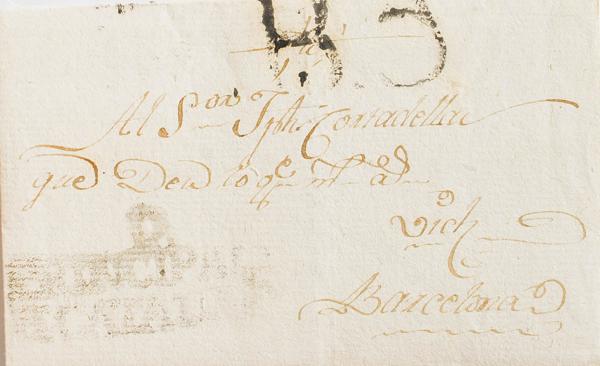 R3
Al S.or Jph. Cortadella
que Deu lo g.e m.s a.s
Vich
Barcelona